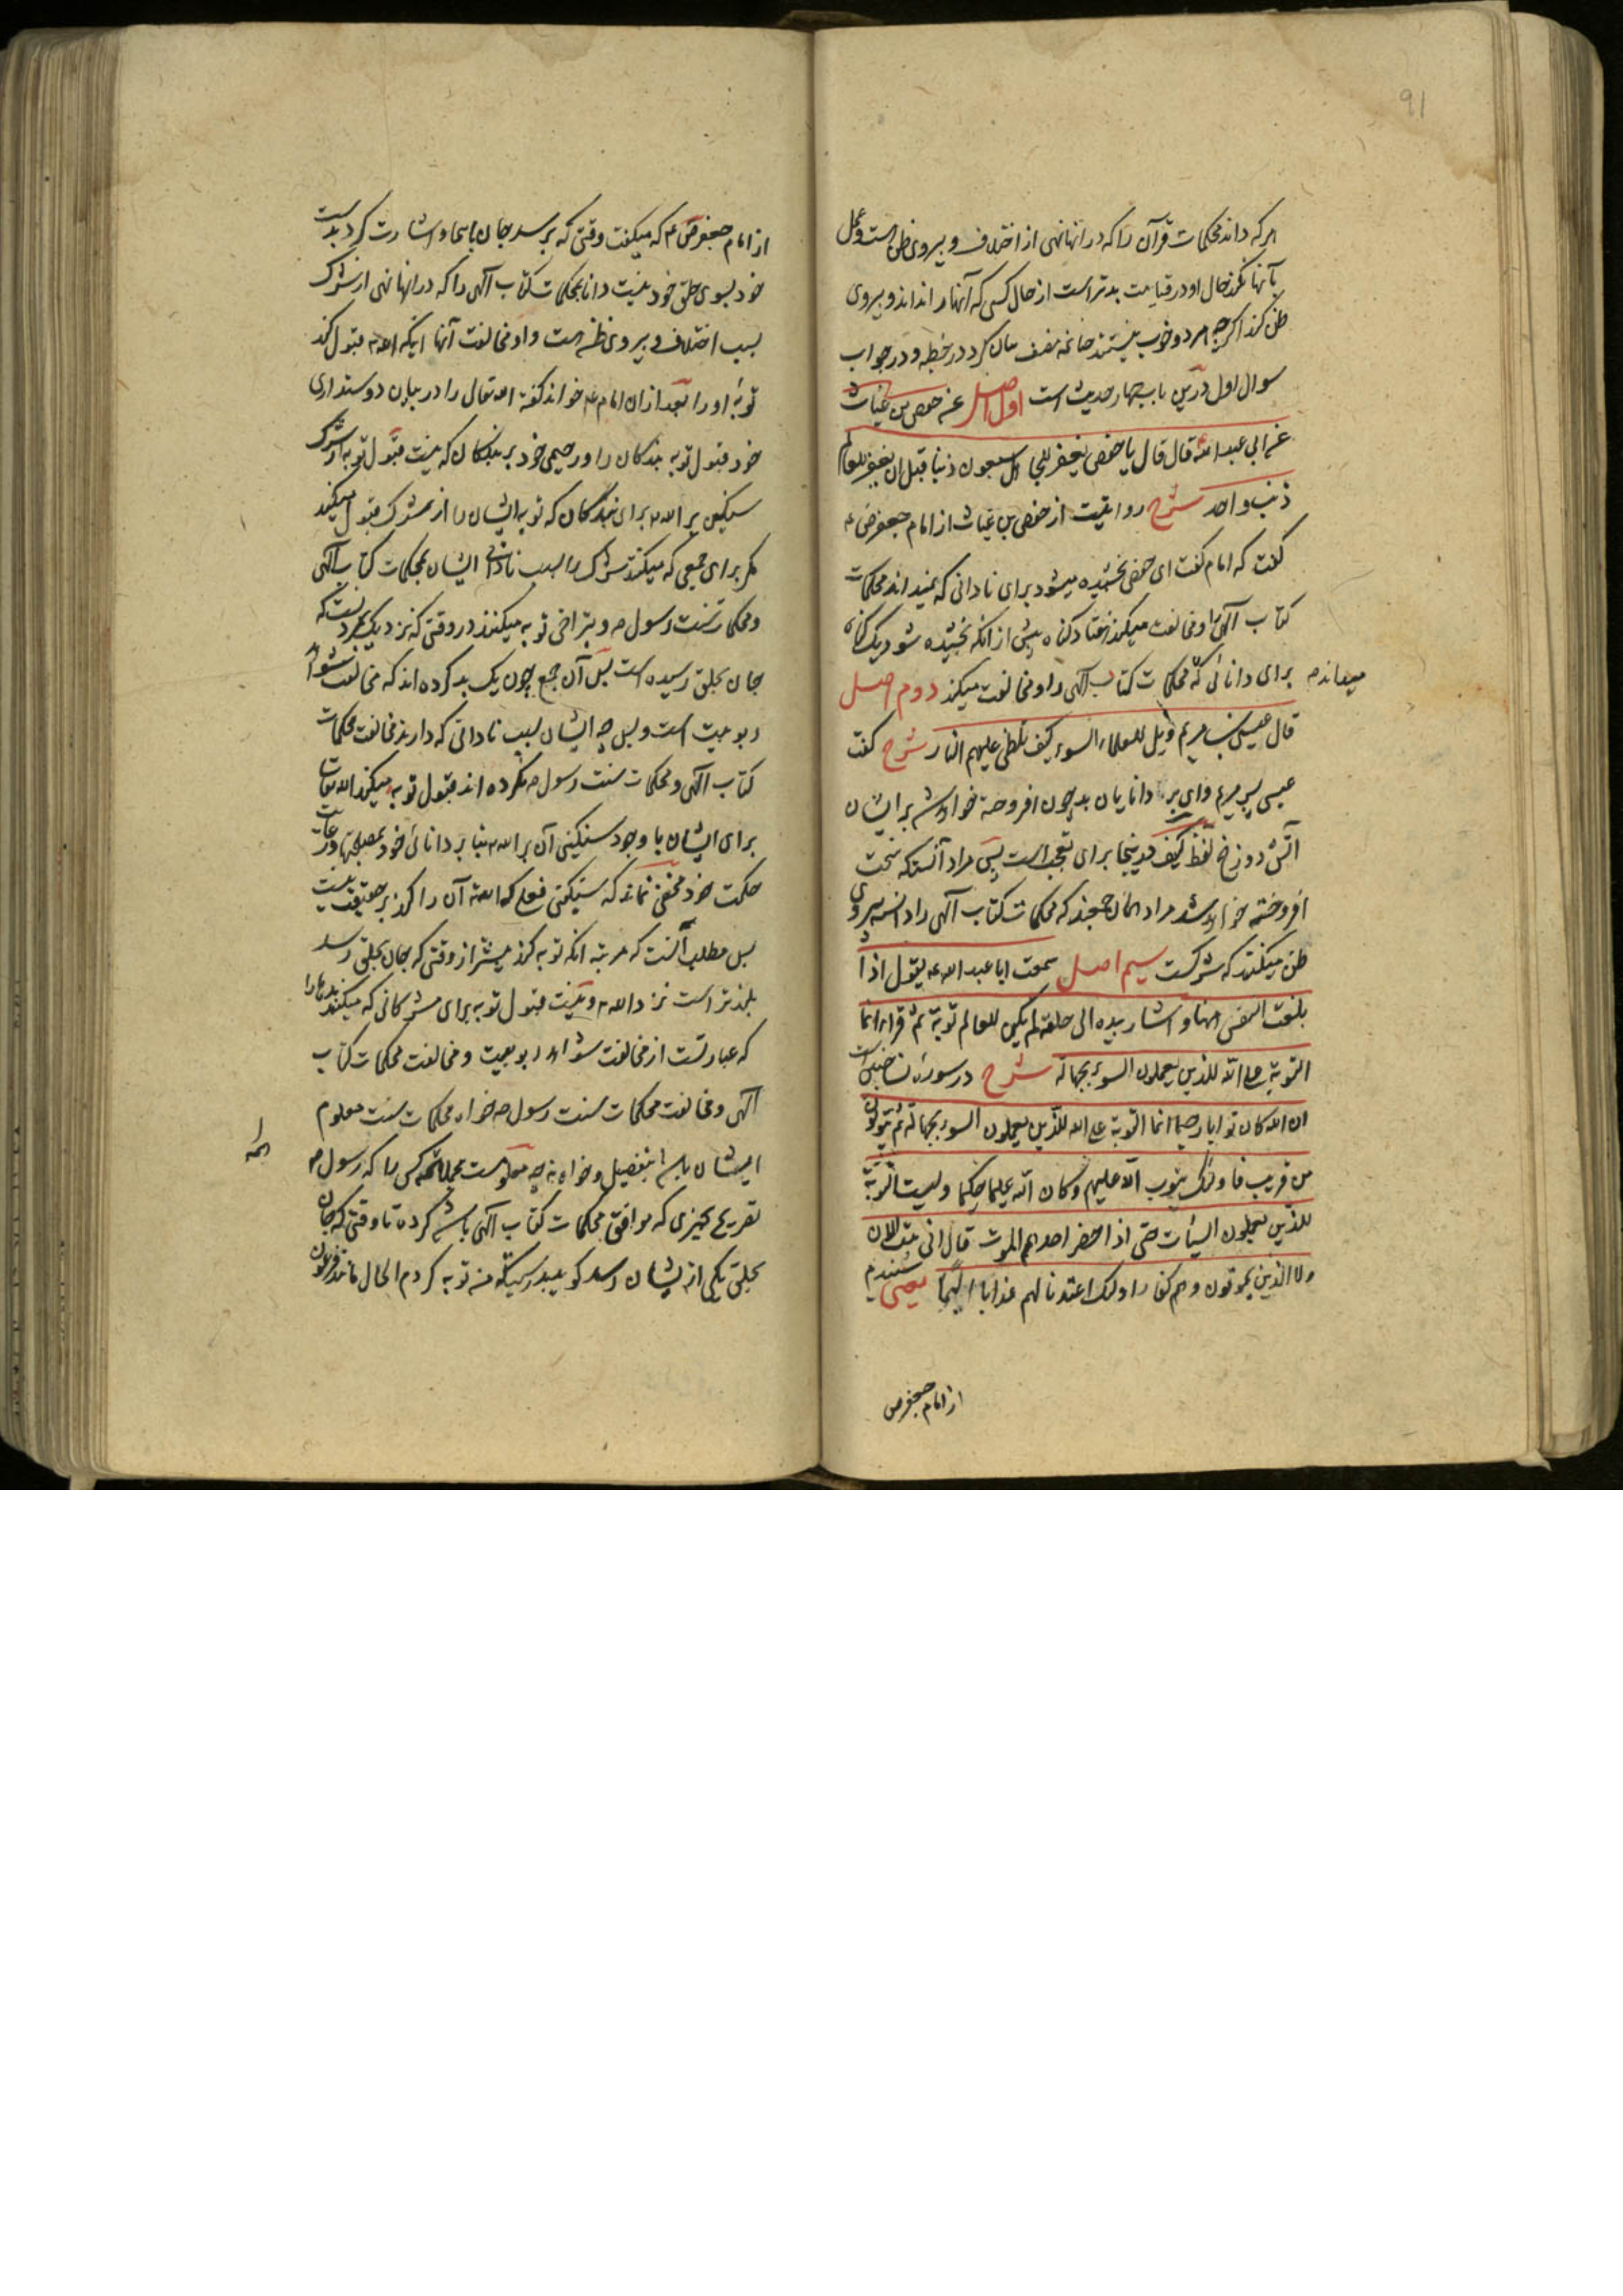 91
هر که داند محکمات قرآن را که در انها نهی از اختلاف و پیروی ظن است و عمل
بآنها نکند حال او در قیامت بدتر است از حال کسی که آنها را نداند و پیروی
ظن کند اگرچه هر دو خوب نیستند چنانچه مصنف بیان کرد در خطبه و در جواب
سوال اول درین باب چهار حدیث است اول اصل عنه حفص بن غیاث
عن ابی عبد الله قال قال یا حفص یغفر للجاهل سبعون ذنبا قبل ان یغفر للعالم
ذنب واحد شرح روایتست از حفص بن غیاث از امام جعفر ص ع
گفت که امام گفت ای حفص بخشیده میشود برای نادانی که نمیداند محکمات
کتاب الهی را و مخالفت میکند هفتاد گناه پیش از آنکه بخشیده شود یک گناه
برای دانائی که محکمات کتاب الهی را و مخالفت میکند دوم اصل
میداند
قال عیسی بن مریم ویل للعلماء السوء کیف تلظی علیهم النار شرح گفت
عیسی پسر مریم وای بر دانایان بد چون افروخته خواهد شد بر ایشان
آتش دوزخ لفظ کیف درینجا برای تعجب است پس مراد آنستکه سخت
افروخته خواهد شد مراد آنان جمعند که محکمات کتاب الهی را دانسته پیروی
ظن میکنند که شرکست سیم اصل سمعت ابا عبد الله ع یقول اذا
بلغت النفس ههنا و اشار بیده الی حلقه لم یکن للعالم توبة ثم قرا انما
التوبة علی الله للذین یعملون السوء بجهالة شرح در سوره نسا چنین است
ان الله کان توابا رحیما انما التوبة علی الله للذین یعملون السوء بجهالة ثم یتوبون
من قریب فاولئک یتوب الله علیهم و کان الله علیما حکیما و لیست التوبة
للذین یعملون السیئات حتی اذا حضر احدهم الموت قال انی تبت الان
و لا الذین یموتون و هم کفار اولئک اعتدنا لهم عذابا الیما یعنی شنیدم
از امام جعفر ص
از امام جعفر ص ع که میگفت وقتی که برسد جان باینجا و اشارت کرد بدست
خود بسوی حلق خود نیست دانا بمحکمات کتاب الهی را که در انها نهی از شرک
بسبب اختلاف و پیروی ظن است و او مخالفت آنها اینکه الله قبول کند
توبه او را بعد ازان امام ع خواند گفته الله تعالی را در بیان دوستداری
خود قبول توبه بندگان را و رحیمی خود بر بندگان که نیست قبول توبه از شرک
سنگین بر الله برای بندگان که توبه ایشان را از شرک قبول میکند
مگر برای جمعی که میکنند شرک را بسبب نادانی ایشان بمحکمات کتاب الهی
و محکمات سنت رسول ص و بتراخی توبه میکنند در وقتی که نزدیک بمرگست که
جان بحلق رسیده است پس آن جمع چون یک بد کرده اند که مخالفت شواهد
ربوبیت است و بس چه ایشان بسبب نادانی که دارند مخالفت محکمات
کتاب الهی و محکمات سنت رسول ص نکرده اند قبول توبه میکند الله تعالی
برای ایشان با وجود سنگینی آن بر الله بنا بر دانائی خود بمصلحتها و رعایت
حکمت خود مخفی نماند که سنگینی فعلی که الله آن را کند بر حقیقت نیست
بل مطلب آنست که مرتبه انکه توبه کند پیشتر از وقتی که جان بحلق رسد
بلندتر است نزد الله و نیست قبول توبه برای مشرکانی که میکنند بدیها را
که عبارتست از مخالفت شواهد ربوبیت و مخالفت محکمات کتاب
الهی و مخالفت محکمات سنت رسول ص خواه محکمات سنت معلوم
ایشان باشد بتفصیل و خواه نه چه معلومست مجملا همه کس را که رسول ص
تصریح بچیزی که موافق محکمات کتاب الهی باشد کرده تا وقتی که جان
بحلق یکی از ایشان رسد گوید بدرستیکه من توبه کردم الحال مانند فرعون